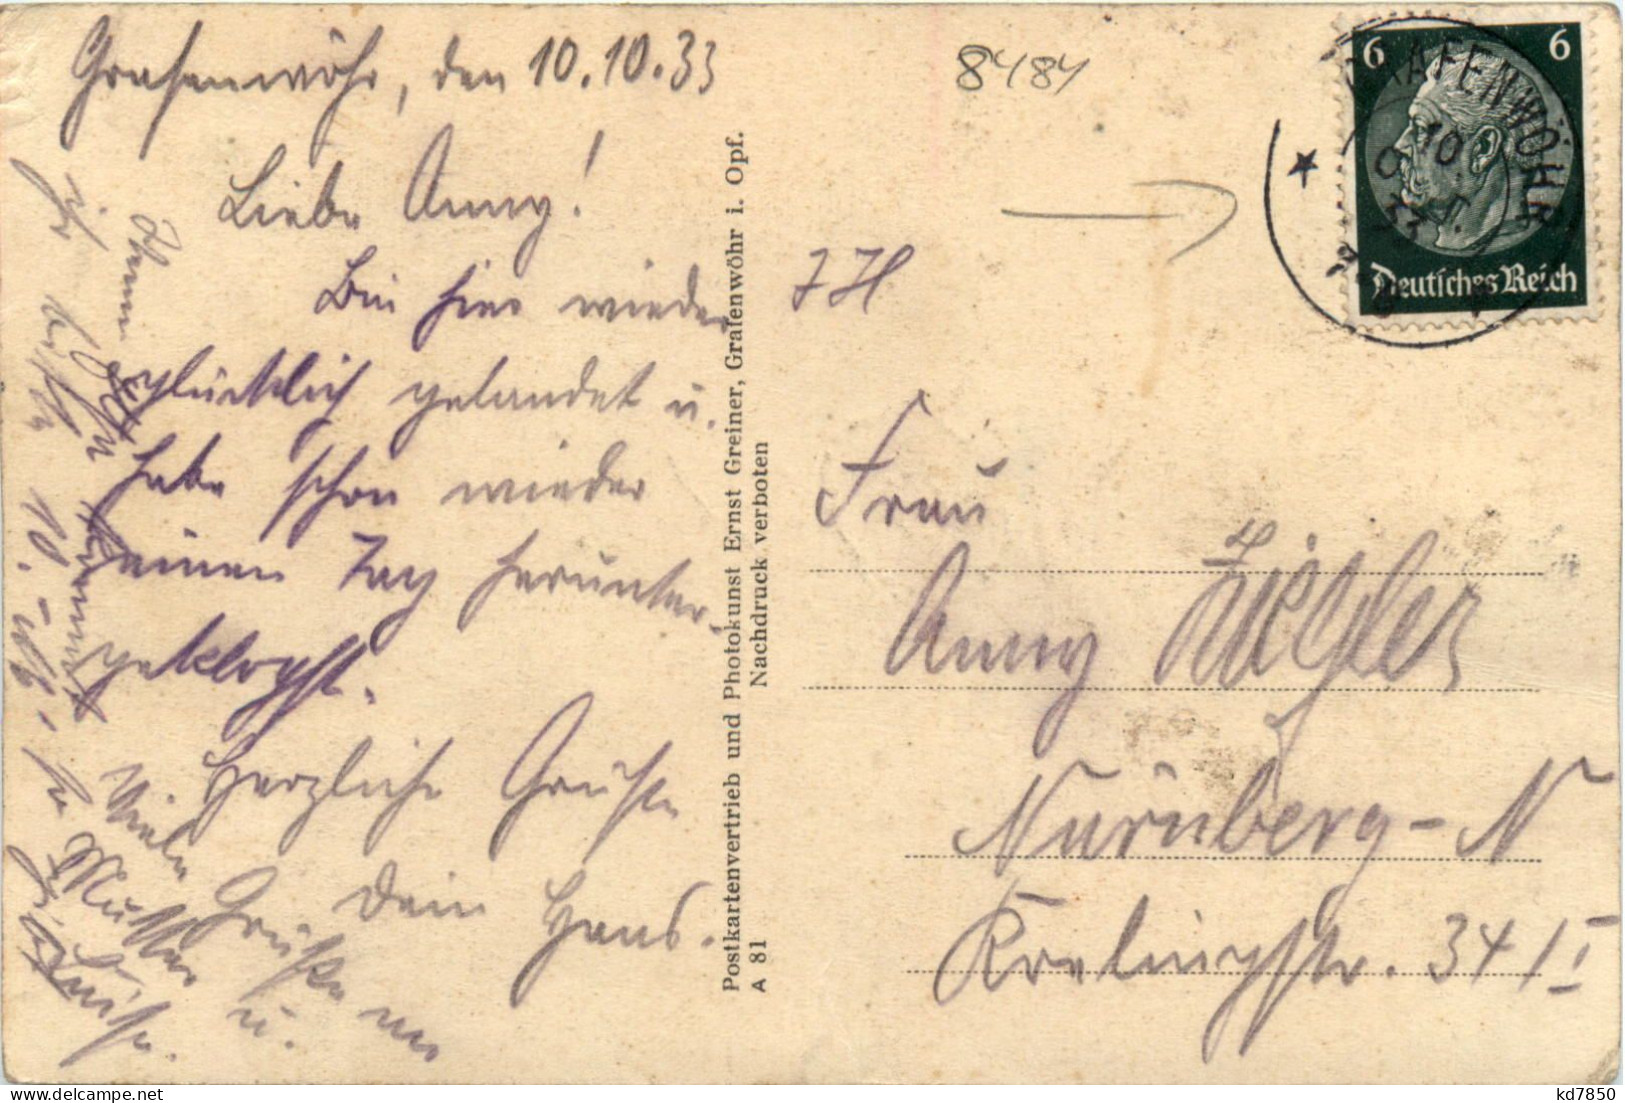 Grafenwöhr, den 10.10.33
Liebe Anny!
Bin hier wieder
glücklich gelandet u.
habe schon wieder
einen Tag herunter-
geklopft.
Herzliche Grüße
Dein Hans.
Viele Grüße an
Mutter u.
Luise.
Postkartenvertrieb und Photokunst Ernst Greiner, Grafenwöhr i. Opf.
Nachdruck verboten
A 81
8484
6 6
GRAFENWÖHR
10
33
Deutsches Reich
Frau
Anny Ziegler
Nürnberg-N
Krelingstr. 34/I
kd7850